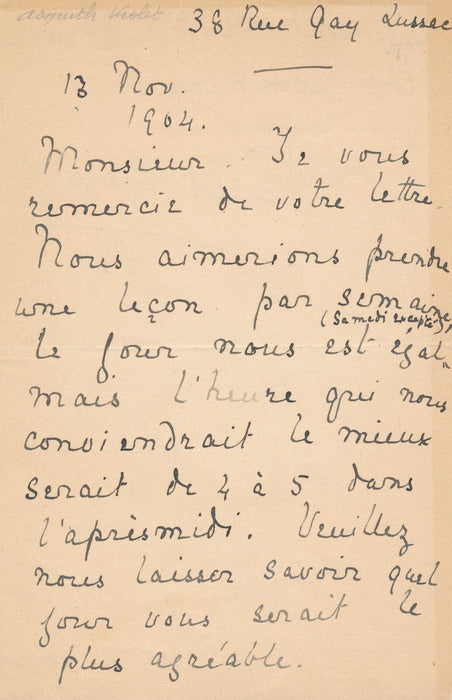 Asquith Violet
38 Rue Gay Lussac
13 Nov.
1904.
Monsieur. Je vous
remercie de votre lettre.
Nous aimerions prendre
une leçon par semaine,
(Samedi excepté)
le jour nous est égal
mais l'heure qui nous
conviendrait le mieux
serait de 4 à 5 dans
l'aprèsmidi. Veuillez
nous laisser savoir quel
jour vous serait le
plus agréable.